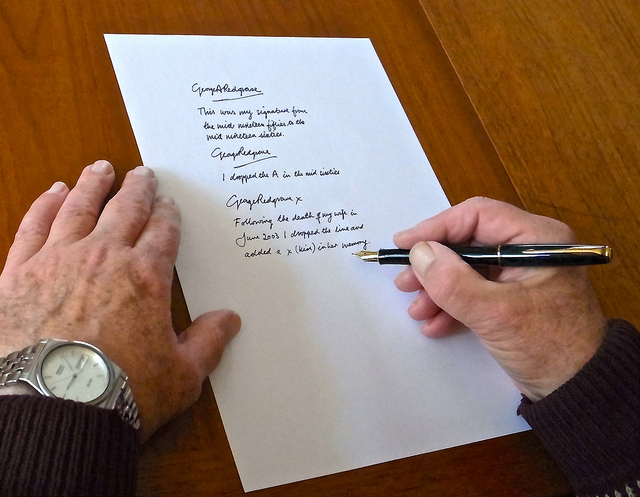 George A Redgrave
This was my signature from
the mid nineteen fifties to the
mid nineteen sixties.
George Redgrave
I dropped the A in the mid sixties
George Redgrave x
Following the death of my wife in
June 2003 I dropped the line and
added a x (kiss) in her memory.